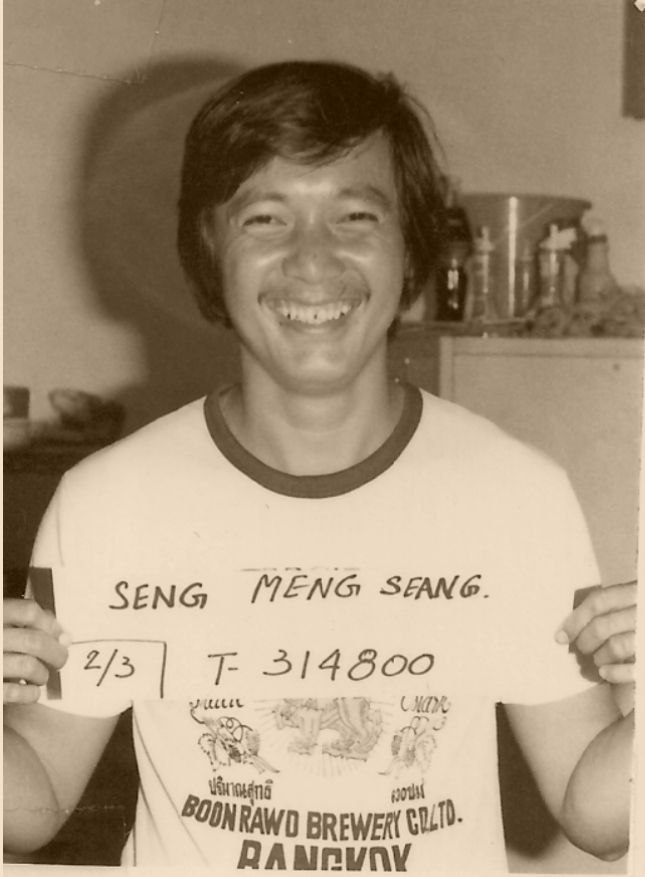 SENG MENG SEANG.
2/3 T- 314800
ปริมาณสุทธิ
BOON RAWD BREWERY CO.LTD.
BANGKOK